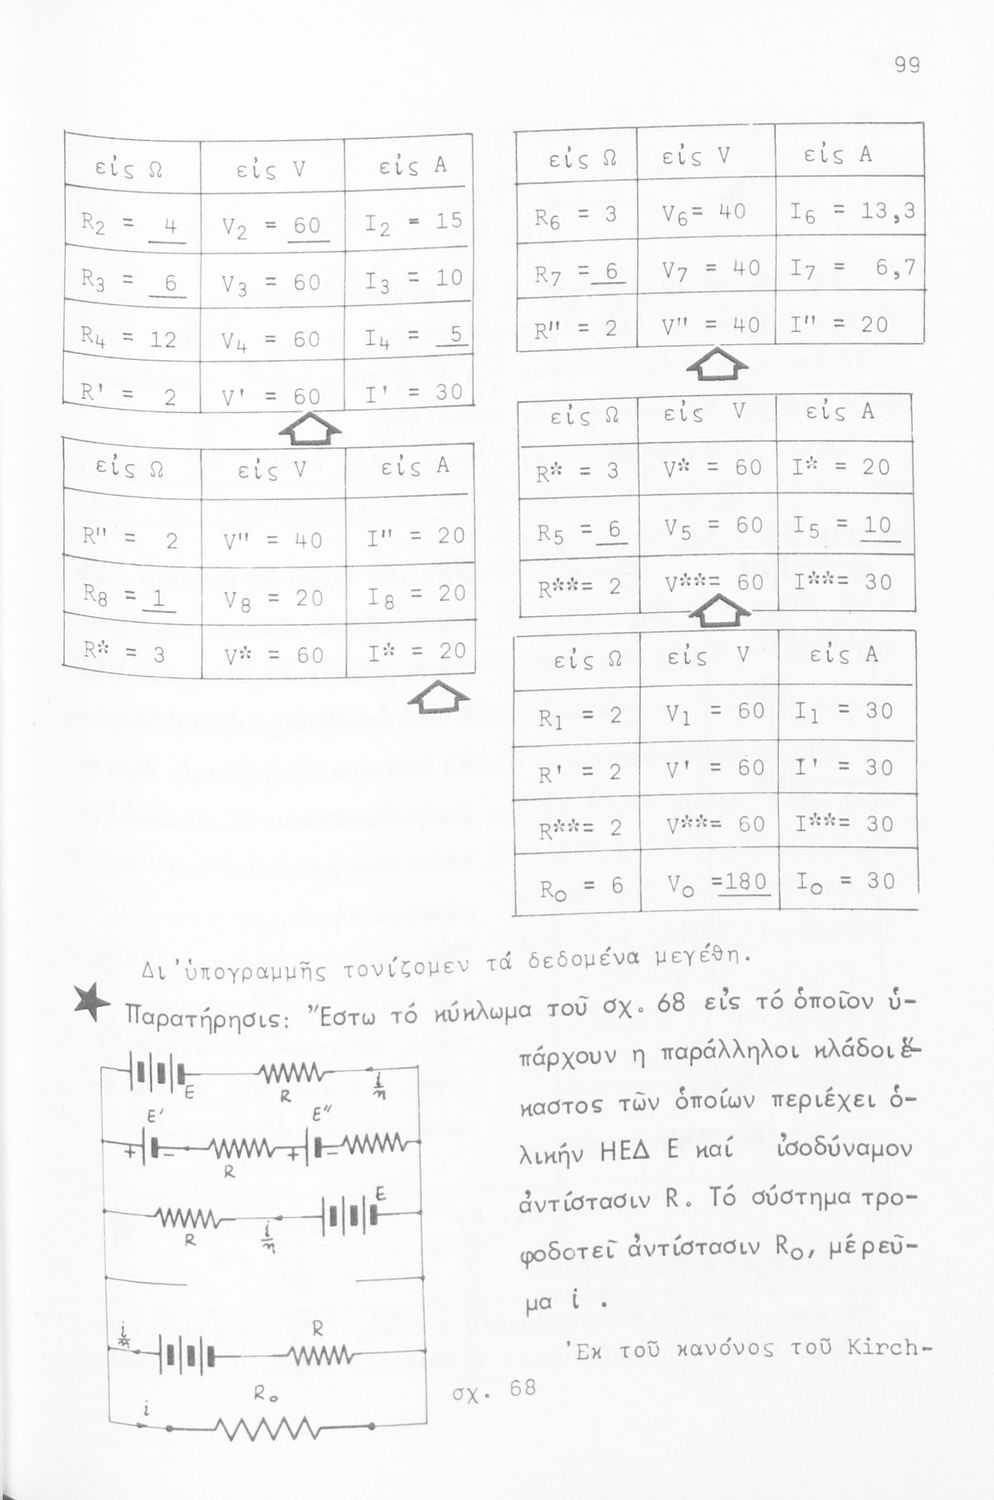 99
εἰς Ω εἰς V εἰς A
R2 = 4 V2 = 60 I2 = 15
R3 = 6 V3 = 60 I3 = 10
R4 = 12 V4 = 60 I4 = 5
R' = 2 V' = 60 I' = 30
εἰς Ω εἰς V εἰς A
R" = 2 V" = 40 I" = 20
R8 = 1 V8 = 20 I8 = 20
R* = 3 V* = 60 I* = 20
εἰς Ω εἰς V εἰς A
R6 = 3 V6= 40 I6 = 13,3
R7 = 6 V7 = 40 I7 = 6,7
R" = 2 V" = 40 I" = 20
εἰς Ω εἰς V εἰς A
R* = 3 V* = 60 I* = 20
R5 = 6 V5 = 60 I5 = 10
R**= 2 V**= 60 I**= 30
εἰς Ω εἰς V εἰς A
R1 = 2 V1 = 60 I1 = 30
R' = 2 V' = 60 I' = 30
R**= 2 V**= 60 I**= 30
Ro = 6 Vo =180 Io = 30
Δι'ὑπογραμμῆς τονίζομεν τά δεδομένα μεγέθη.
★ Παρατήρησις: Ἔστω τό κύκλωμα τοῦ σχ. 68 εἰς τό ὁποῖον ὑ-
πάρχουν η παράλληλοι κλάδοι ἕ-
καστος τῶν ὁποίων περιέχει ὁ-
λικήν ΗΕΔ Ε καί ἰσοδύναμον
ἀντίστασιν R. Τό σύστημα τρο-
φοδοτεῖ ἀντίστασιν Ro, μέ ρεῦ-
μα i .
Ἐκ τοῦ κανόνος τοῦ Kirch-
E R i/n
E' E"
+ - R + -
R i/n E
i/n R
Ro
i
σχ. 68